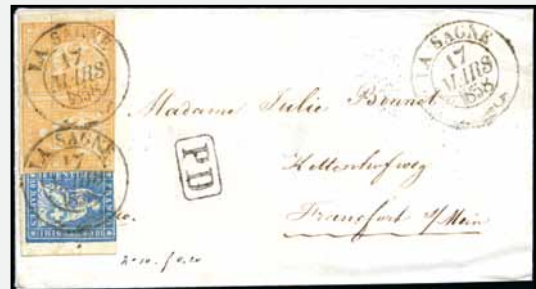 LA SAGNE
17
MARS
1858
LA SAGNE
17
MARS
1858
LA SAGNE
17
1858
Madame Julie Brunnet
Kettenhofweg
Francfort s/Mein
PD